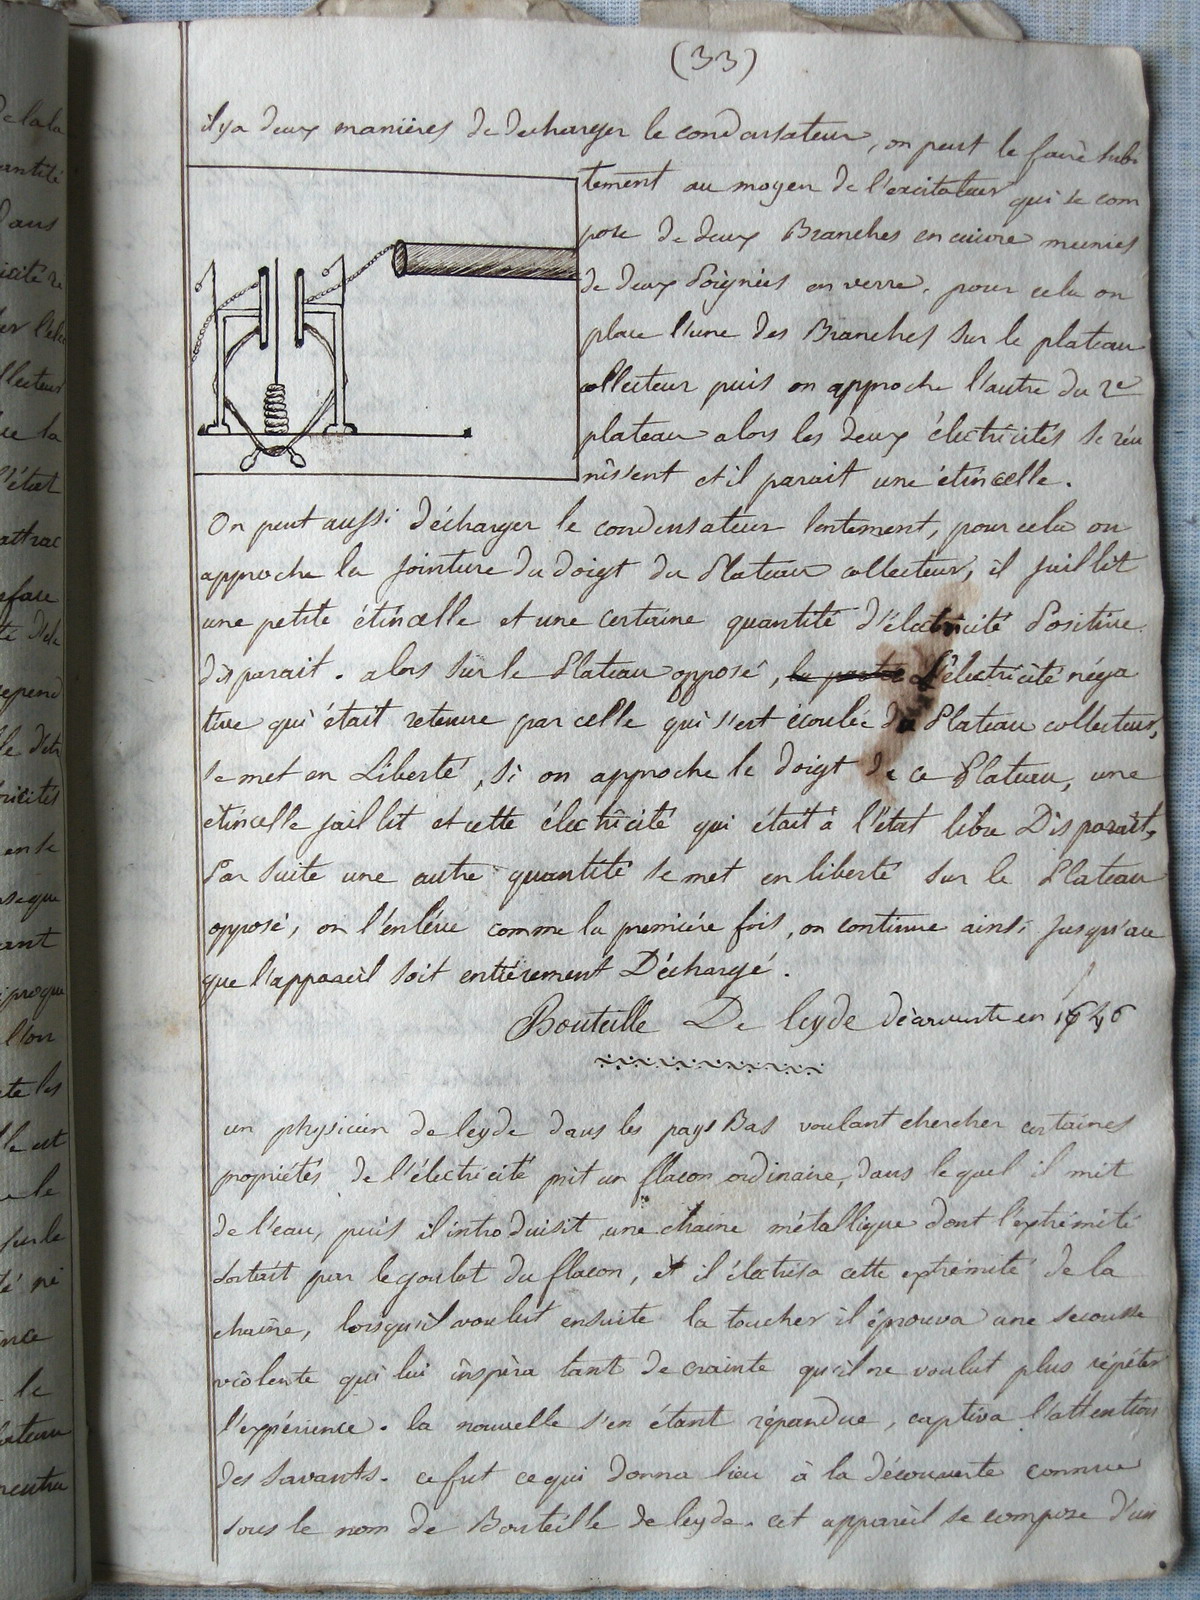 (33)
il ya deux manières de decharger le condensateur, on peut le faire subi
tement au moyen de l'excitateur qui se com
pose de deux Branches en cuivre munies
de deux Poignées en verre. pour cela on
place l'une des Branches sur le plateau
collecteur puis on approche l'autre du 2e
plateau alors les deux électricités se réu
nissent et il parait une étincelle.
On peut aussi décharger le condensateur lentement, pour cela on
approche la jointure du doigt du Plateau collecteur, il jaillit
une petite étincelle et une certaine quantité d'électricité Positive
disparait. alors sur le Plateau opposé, la partie L'électricité néga
tive qui était retenue par celle qui s'est écoulée du Plateau collecteur,
se met en Liberté, si on approche le doigt de ce Plateau, une
étincelle jaillit et cette électricité qui était à l'état libre Disparait,
Par suite une autre quantité se met en liberté sur le Plateau
opposé, on l'enlève comme la première fois, on continue ainsi jusqu'a ce
que l'appareil soit entièrement Déchargé.
Bouteille De leyde découverte en 1646
un physicien de leyde dans les pays Bas voulant chercher certaines
propriétés de l'électricité prit un flacon ordinaire, dans lequel il mit
de l'eau, puis il introduisit une chaine métallique dont l'extrémité
sortait par le goulot du flacon, et il électrisa cette extrémité de la
chaine, lorsqu'il voulut ensuite la toucher il éprouva une secousse
violente qui lui inspira tant de crainte qu'il ne voulut plus répéter
l'expérience. la nouvelle s'en étant répandue, captiva l'attention
des savants. ce fut ce qui donna lieu à la découverte connue
sous le nom de Bouteille de leyde. cet appareil se compose d'un